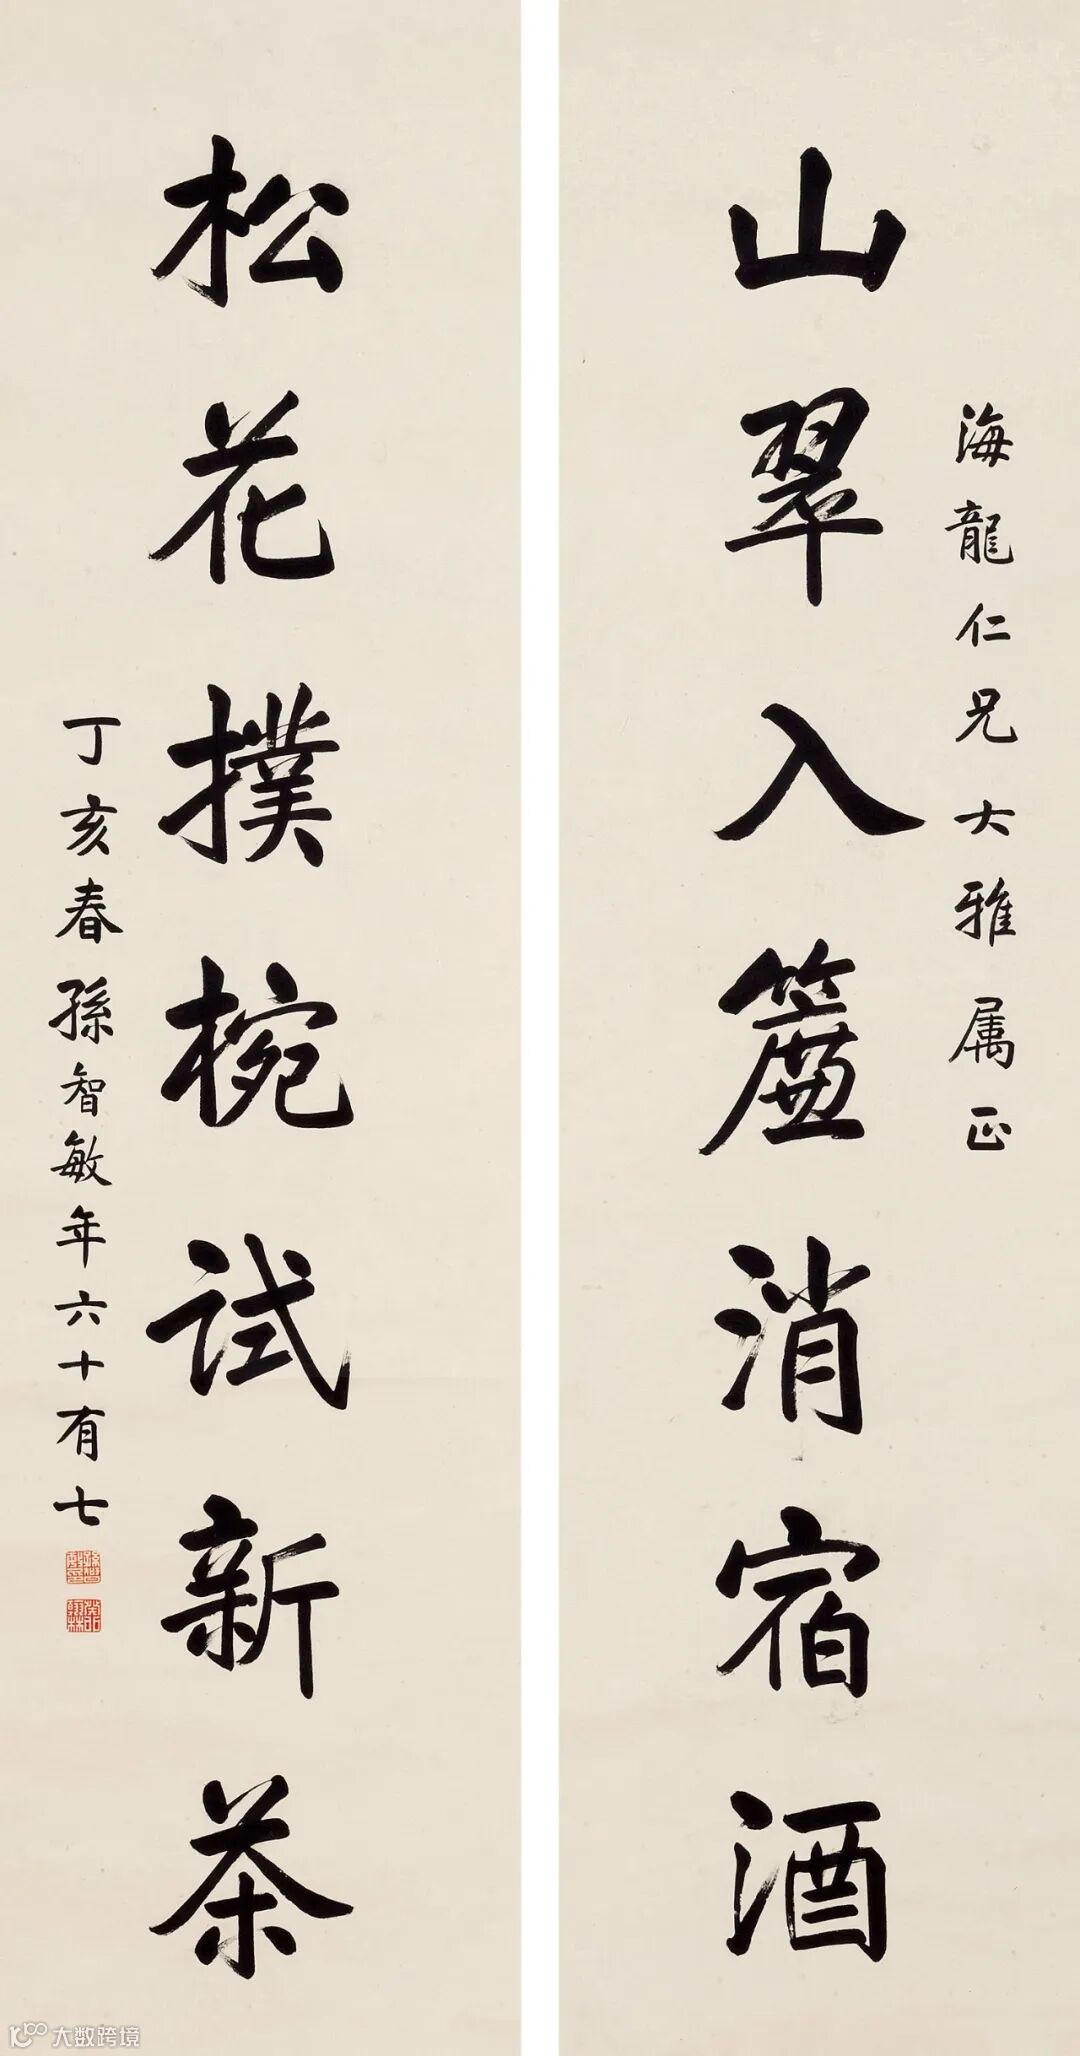 海龍仁兄大雅属正
山翠入簾消宿酒
松花撲椀試新茶
丁亥春孫智敏年六十有七
大数跨境